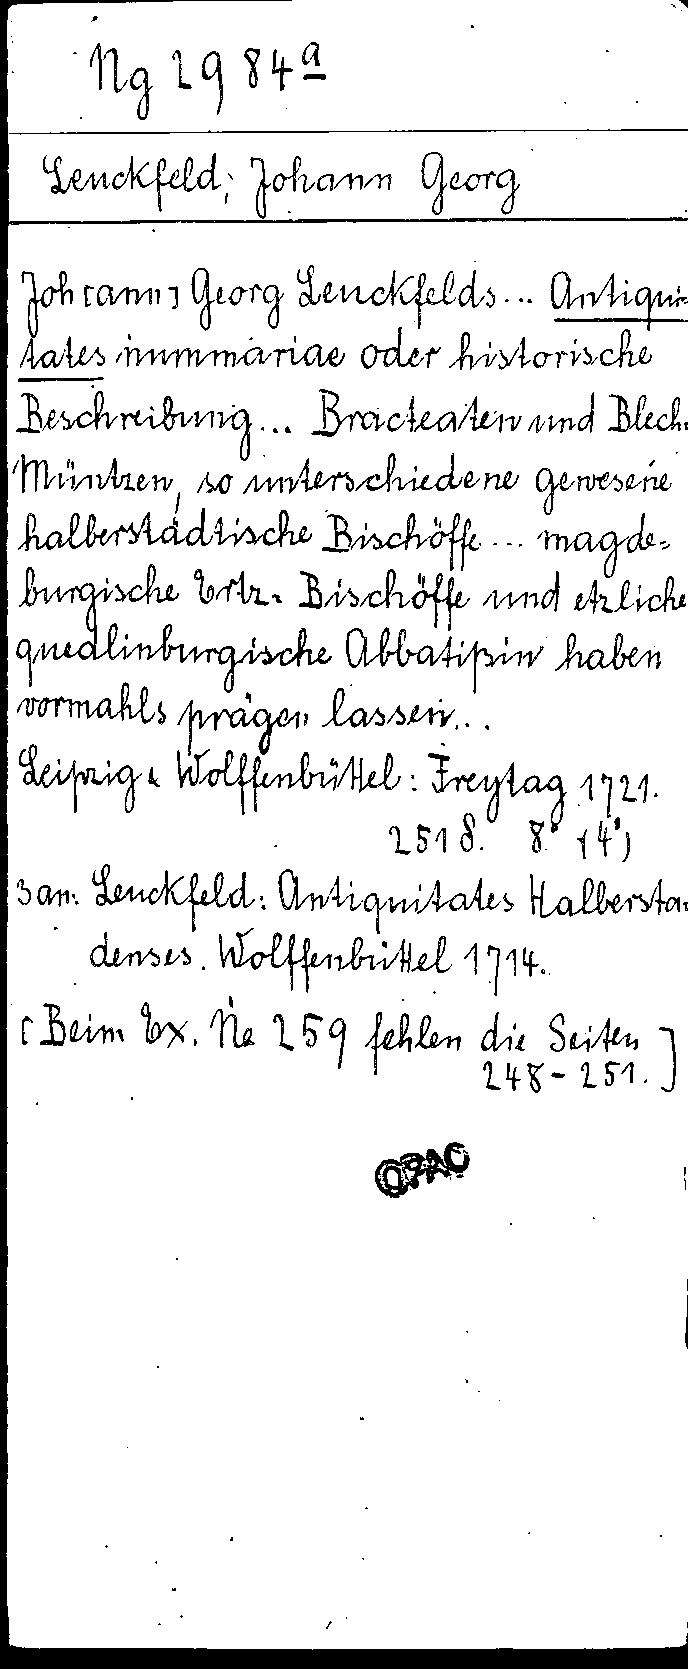 Ng 2984 a
Leuckfeld, Johann Georg
Joh[ann] Georg Leuckfelds... Antiqui-
tates nummariae oder historische
Beschreibung... Bracteaten und Blech-
Müntzen, so unterschiedene gewesene
halberstädtische Bischöffe... magde-
burgische Ertz-Bischöffe und etzliche
quedlinburgische Abbatißin haben
vormahls prägen lassen...
Leipzig & Wolffenbüttel: Freytag 1721.
251 S. 8° (4°)
3 an: Leuckfeld: Antiquitates Halbersta-
denses. Wolffenbüttel 1714.
[Beim Ex. Ne 259 fehlen die Seiten
248-251.]
OPAC